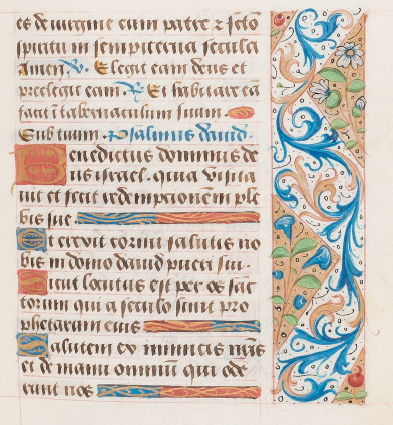 es de virgine cum patre ⁊ scto
spiritu in sempiterna secula
Amen. V. Elegit eam deus et
preelegit eam. R. Et habitare eā
facit ī tabernaculum suum.
Sub tuum. Psalmus david.
Benedictus dominus de
us israel. quia visita
uit et fecit redemptionem ple
bis sue.
Et erexit cornu salutis no
bis in domo david pueri sui.
Sicut locutus est per os sāc
torum qui a seculo sunt pro
phetarum eius
Salutem ex inimicis nr̄is
et de manu omniū qui ode
runt nos